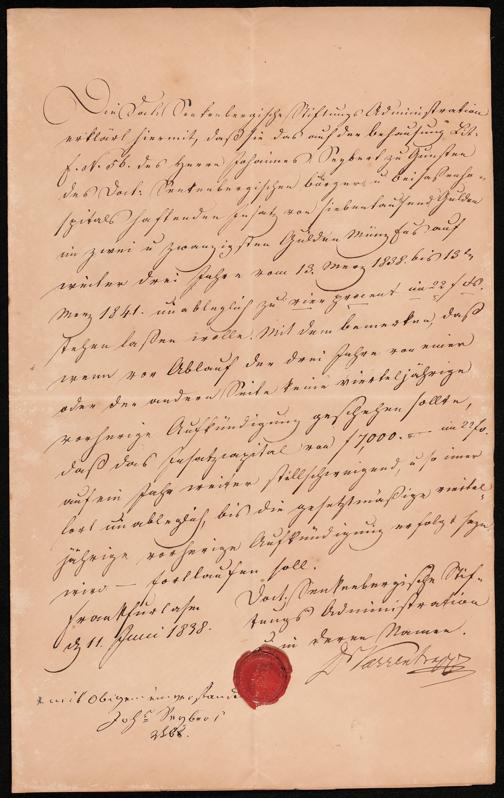 Die Doct. Senkenbergische Stiftungs Administration
erklärt hiermit, daß sie das auf der Behausung Lit.
F. N. 56. des Herrn Johannes Seybert zu Gunsten
des Doct. Senkenbergischen Bürger u Beisassenho-
spitals haftenden Insatz von siebentausend Gulden
im zwei u zwanzigsten Gulden Münzfus auf
weiter drei Jahre vom 13. Merz 1838. bis 13n
Merz 1841. unableglich zu vier procent im 22 f fs.
stehen lassen wolle. Mit dem bemerken, daß
wenn vor Ablauf der drei Jahre von einer
oder der andern Seite keine vierteljährige
vorherige Aufkündigung geschehen sollte,
daß das Insatzcapital von f 7,000. – im 22 fs.
auf ein Jahr weiter stillschweigend, u so imer
fort unableglich, bis die gesetzmäßige viertel-
jährige vorherige Aufkündigung erfolgt seyn
wird – fortlaufen soll.
Frankfurt a/m
d 11. Juni 1838.
Doct. Senkenbergische Stif-
tungs Administration
u in deren Namen.
Dr Varrentrapp
mit Obigem einverstande
Johs Seybert